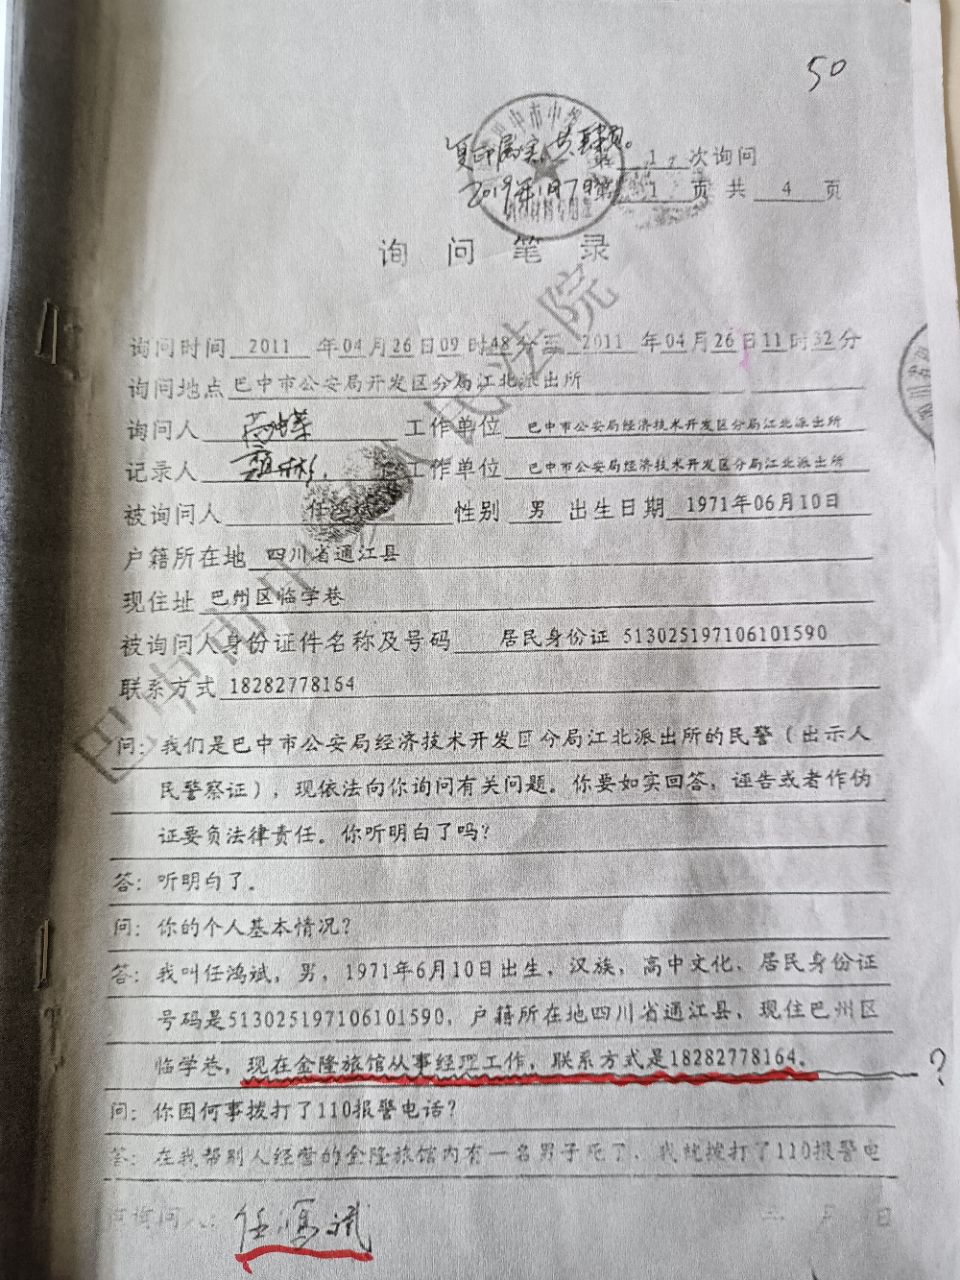 50
复印属实，共肆页。
第 1 次询问
2019年1月7日
第 1 页 共 4 页
询 问 笔 录
询问时间 2011 年04月26日09时48分至 2011 年04月26日11时32分
询问地点 巴中市公安局开发区分局江北派出所
询问人 工作单位 巴中市公安局经济技术开发区分局江北派出所
记录人 工作单位 巴中市公安局经济技术开发区分局江北派出所
被询问人 任鸿斌 性别 男 出生日期 1971年06月10日
户籍所在地 四川省通江县
现住址 巴州区临学巷
被询问人身份证件名称及号码 居民身份证 513025197106101590
联系方式 18282778164
问：我们是巴中市公安局经济技术开发区分局江北派出所的民警（出示人
民警察证），现依法向你询问有关问题。你要如实回答，诬告或者作伪
证要负法律责任。你听明白了吗？
答：听明白了。
问：你的个人基本情况？
答：我叫任鸿斌，男，1971年6月10日出生，汉族，高中文化，居民身份证
号码是513025197106101590，户籍所在地四川省通江县，现住巴州区
临学巷，现在金隆旅馆从事经理工作，联系方式是18282778164。 ？
问：你因何事拨打了110报警电话？
答：在我帮别人经营的金隆旅馆内有一名男子死了，我就拨打了110报警电
被询问人：任鸿斌 年 月 日